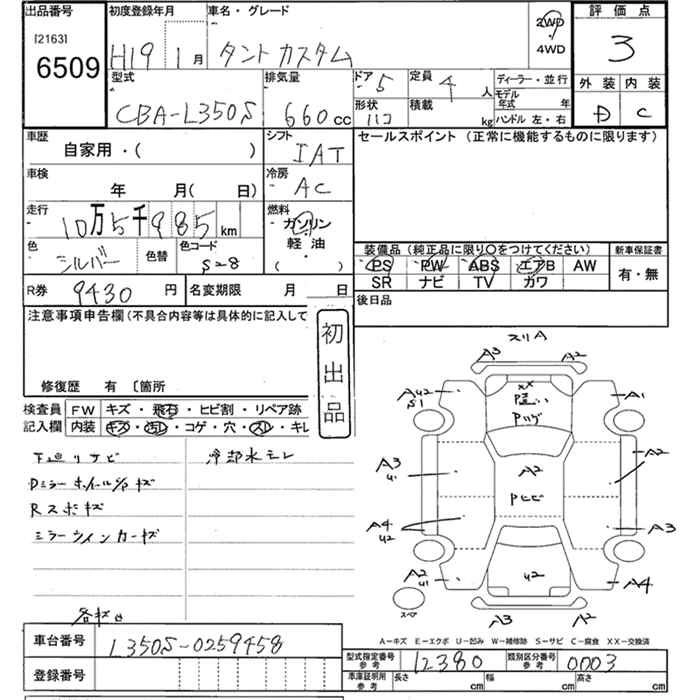 出品番号 初度登録年月 車名・グレード 2WD 評価点
[2163] H19 1月 タントカスタム 4WD 3
6509
型式 排気量 ドア 5 定員 4人 ディーラー・並行 外装 内装
CBA-L350S 660cc 形状 ハコ 積載 kg モデル年式 年 D C
ハンドル 左・右
車歴 シフト セールスポイント (正常に機能するものに限ります)
自家用・( ) IAT
車検 冷房
年 月( 日) AC
走行 燃料
10万5千985km ガソリン
色 色替 色コード 軽油・ 装備品(純正品に限り○をつけてください) 新車保証書
シルバー S28 ( ) PS PW ABS エアB AW 有・無
SR ナビ TV カワ
R券 9430円 名変期限 月 日 後日品
注意事項申告欄(不具合内容等は具体的に記入して
初出品
修復歴 有 〔箇所
検査員 FW キズ・飛石・ヒビ割・リペア跡
記入欄 内装 キズ・汚レ・コゲ・穴・スレ・キレ
下廻りサビ 冷却水モレ
Dミラー ホイール/B キズ
Rスポキズ
ミラーウインカーキズ
各キズ凹
スリA
A3 A2
AU2 S1 XX A1
A3 U1 A2 A2
Pヒビ
A4 U2 A3
A2 U1 U2 A4
スペア A3 A2
A-キズ E-エクボ U-凹み W-補修跡 S-サビ C-腐食 XX-交換済
車台番号 L350S-0259458 型式指定番号 参考 12380 類別区分番号 参考 0003
登録番号 車庫証明用 参考 長さ cm 幅 cm 高さ cm